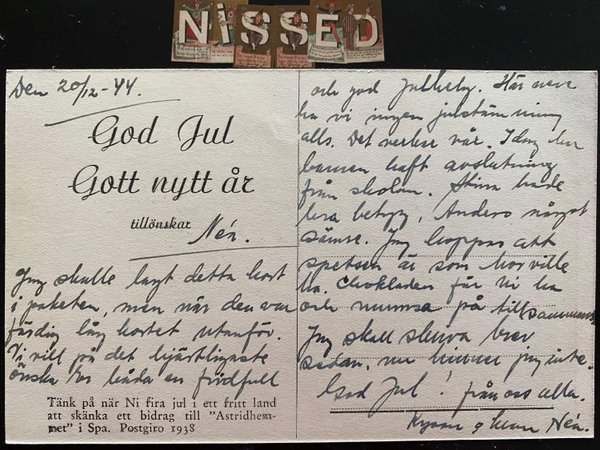 NiSSED
Den 20/12 - 44.
God Jul
Gott nytt år
tillönskar
Nén.
Jag skulle lagt detta kort
i paketet, men när den var
färdig låg kortet utanför.
Vi vill på det hjärtligaste
önska Er båda en fridfull
Tänk på när Ni fira jul i ett fritt land
att skänka ett bidrag till "Astridhem-
met" i Spa. Postgiro 1938
och god Julhelg. Här
ha vi ingen julstämning
alls. Det verkar vår. Idag har
barnen haft avslutning
från skolan. Stina hade
bra betyg, Anders något
sämre. Jag hoppas att
spetsen är som mor ville
ha. Chokladen får Ni ha
och mumsa på tillsammans
Jag skall skriva brev
sedan, nu hinner jag inte.
God Jul! från oss alla.
Nén.